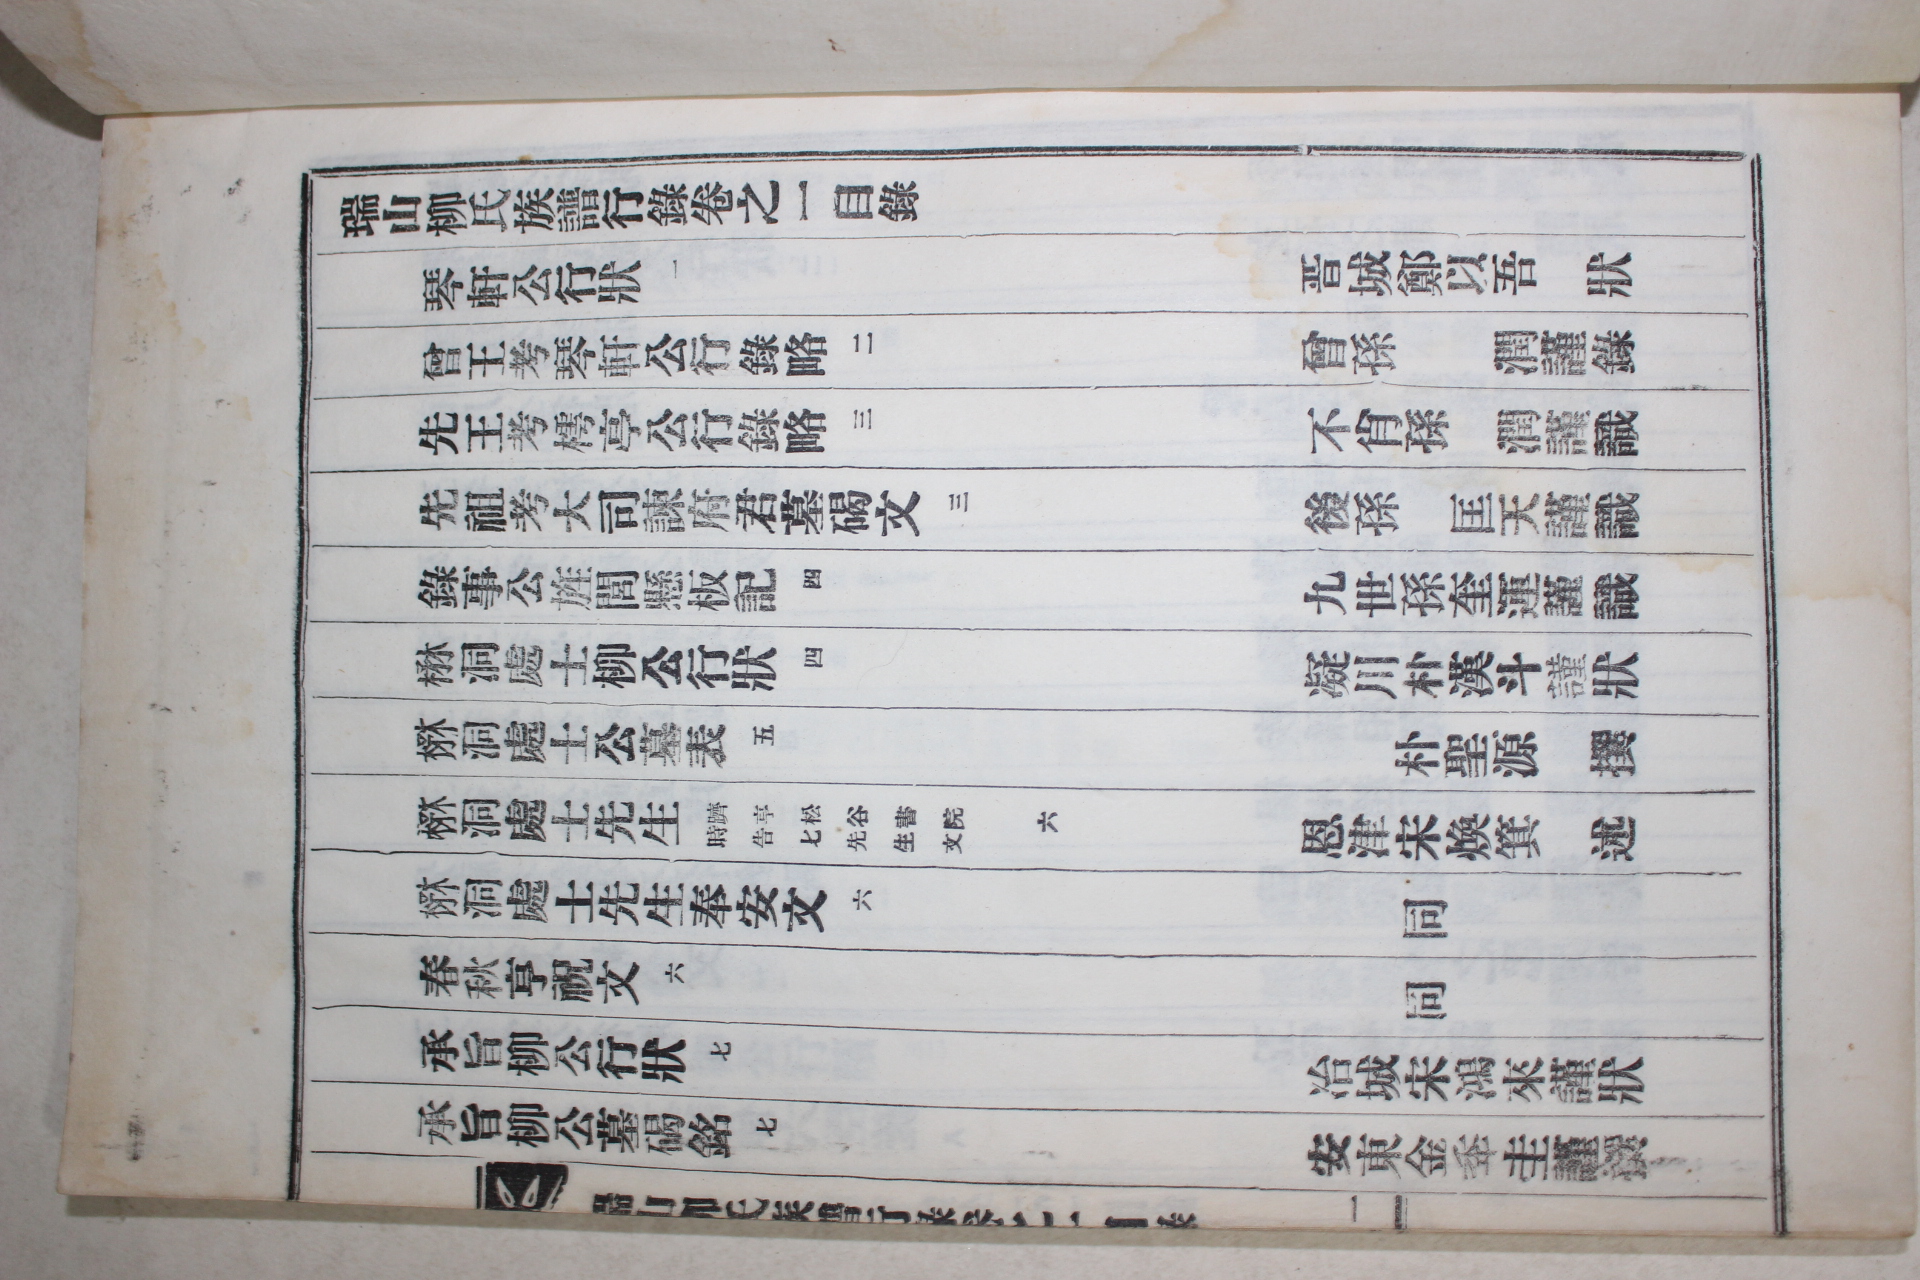 瑞山柳氏族譜行錄卷之一目錄
琴軒公行狀 一 晋城鄭以吾 狀
曾王考琴軒公行錄略 二 曾孫 潤謹錄
先王考樗亭公行錄略 三 不肖孫 潤謹識
先祖考大司諫府君墓碣文 三 後孫 匡天謹識
錄事公旌閭懸板記 四 九世孫奎運謹識
洞處士柳公行狀 四 凝川朴漢斗謹狀
洞處士公墓表 五 朴聖源 撰
洞處士先生 躋享松谷書院時告七先生文 六 恩津宋煥箕 述
洞處士先生奉安文 六 同
春秋亨祝文 六 同
承旨柳公行狀 七 冶城宋鴻來謹狀
承旨柳公墓碣銘 七 安東金圭謹撰
瑞山柳氏族譜行錄卷之一目錄 一